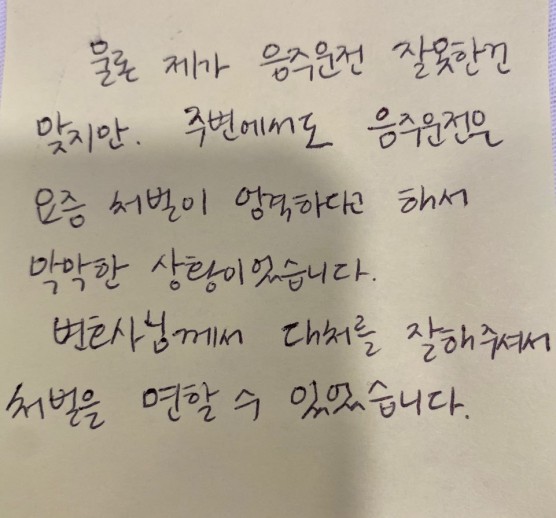 물론 제가 음주운전 잘못한건
맞지만. 주변에서도 음주운전은
요즘 처벌이 엄격하다고 해서
막막한 상황이었습니다.
변호사님께서 대처를 잘해주셔서
처벌을 면할 수 있었습니다.